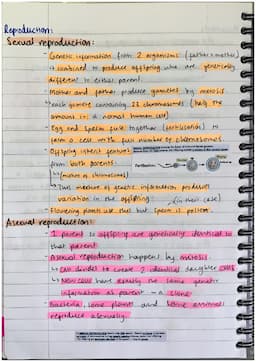 Reproduction:
Sexual reproduction:
- Genetic information from 2 organisms (father & mother)
is combined to produce offspring who are genetically
different to either parent.
- Mother and father produce gametes by meiosis
↳ each gamete containing 23 chromosomes (half the
amount in a normal human cell)
- Egg and sperm fuse together (fertilisation) to
form a cell with full number of chromosomes.
- Offspring inherit features
from both parents.
↳ (mixture of chromosomes)
↳ This mixture of genetic information produces
variation in the offspring. (in their case)
- Flowering plants use this but sperm is pollen.
Asexual reproduction:
- 1 parent so offspring are genetically identical to
that parent.
- Asexual reproduction happens by mitosis.
↳ Cell divides to create 2 identical daughter cells
↳ New cells have exactly the same genetic
information as parent = a clone
- Bacteria, some plants and some animals
reproduce asexually.